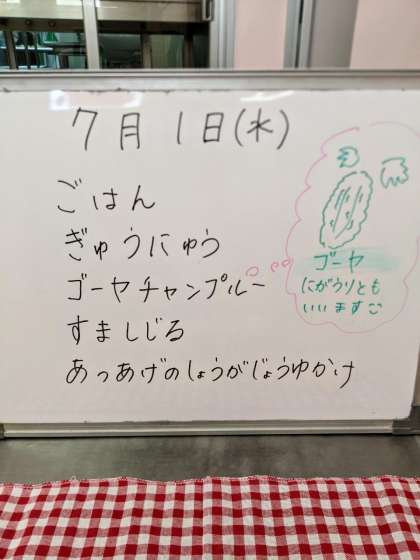 7月1日(水)
ごはん
ぎゅうにゅう
ゴーヤチャンプルー
すましじる
あつあげのしょうがじょうゆかけ
ゴーヤ
にがうりとも
いいます。